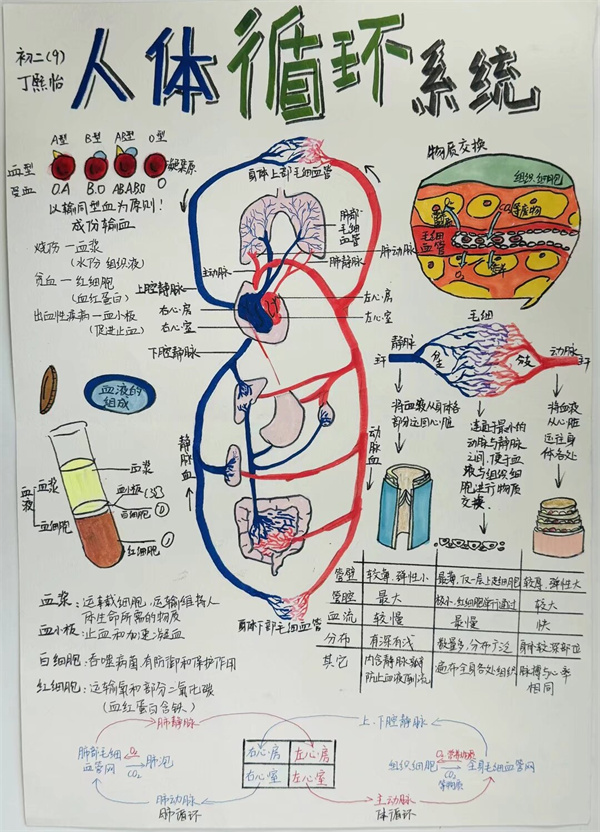 人体循环系统
初二(9)
丁熙怡
A型 B型 AB型 O型
血型
凝集原
受血 O.A B.O AB.A.B.O O
以输同型血为原则!
成份输血
烧伤—血浆
(水份 组织液)
贫血—红细胞
(血红蛋白)
出血性疾病—血小板
(促进止血)
血液的
组成
血浆
血小板
白细胞
红细胞
血液
血浆
血细胞
身体上部毛细血管
肺部
毛细
血管
主动脉
肺静脉
肺动脉
上腔静脉
右心房
右心室
左心房
左心室
下腔静脉
静脉血
动脉血
身体下部毛细血管
物质交换
组织细胞
毛细
血管
毛细
静脉
动脉
将血液从身体各
部分送回心脏
连通于最小的
动脉与静脉
之间,便于血
液与组织细
胞进行物质
交换.
将血液
从心脏
运往身
体各处
管壁 较薄,弹性小 最薄,仅一层上皮细胞 较厚,弹性大
管腔 最大 极小,红细胞单行通过 较大
血流 较慢 最慢 快
分布 有深有浅 数量多,分布广泛 身体较深部位
其它 内含静脉瓣 防止血液倒流 遍布全身各处组织 脉搏与心率相同
血浆:运载血细胞,运输维持人
体生命所需的物质
血小板:止血和加速凝血
白细胞:吞噬病菌,有防御和保护作用
红细胞:运输氧和部分二氧化碳
(血红蛋白含铁)
肺静脉
上、下腔静脉
肺部毛细
血管网
O₂
CO₂
肺泡
右心房 左心房
右心室 左心室
组织细胞
CO₂
全身毛细血管网
肺动脉
肺循环
主动脉
体循环